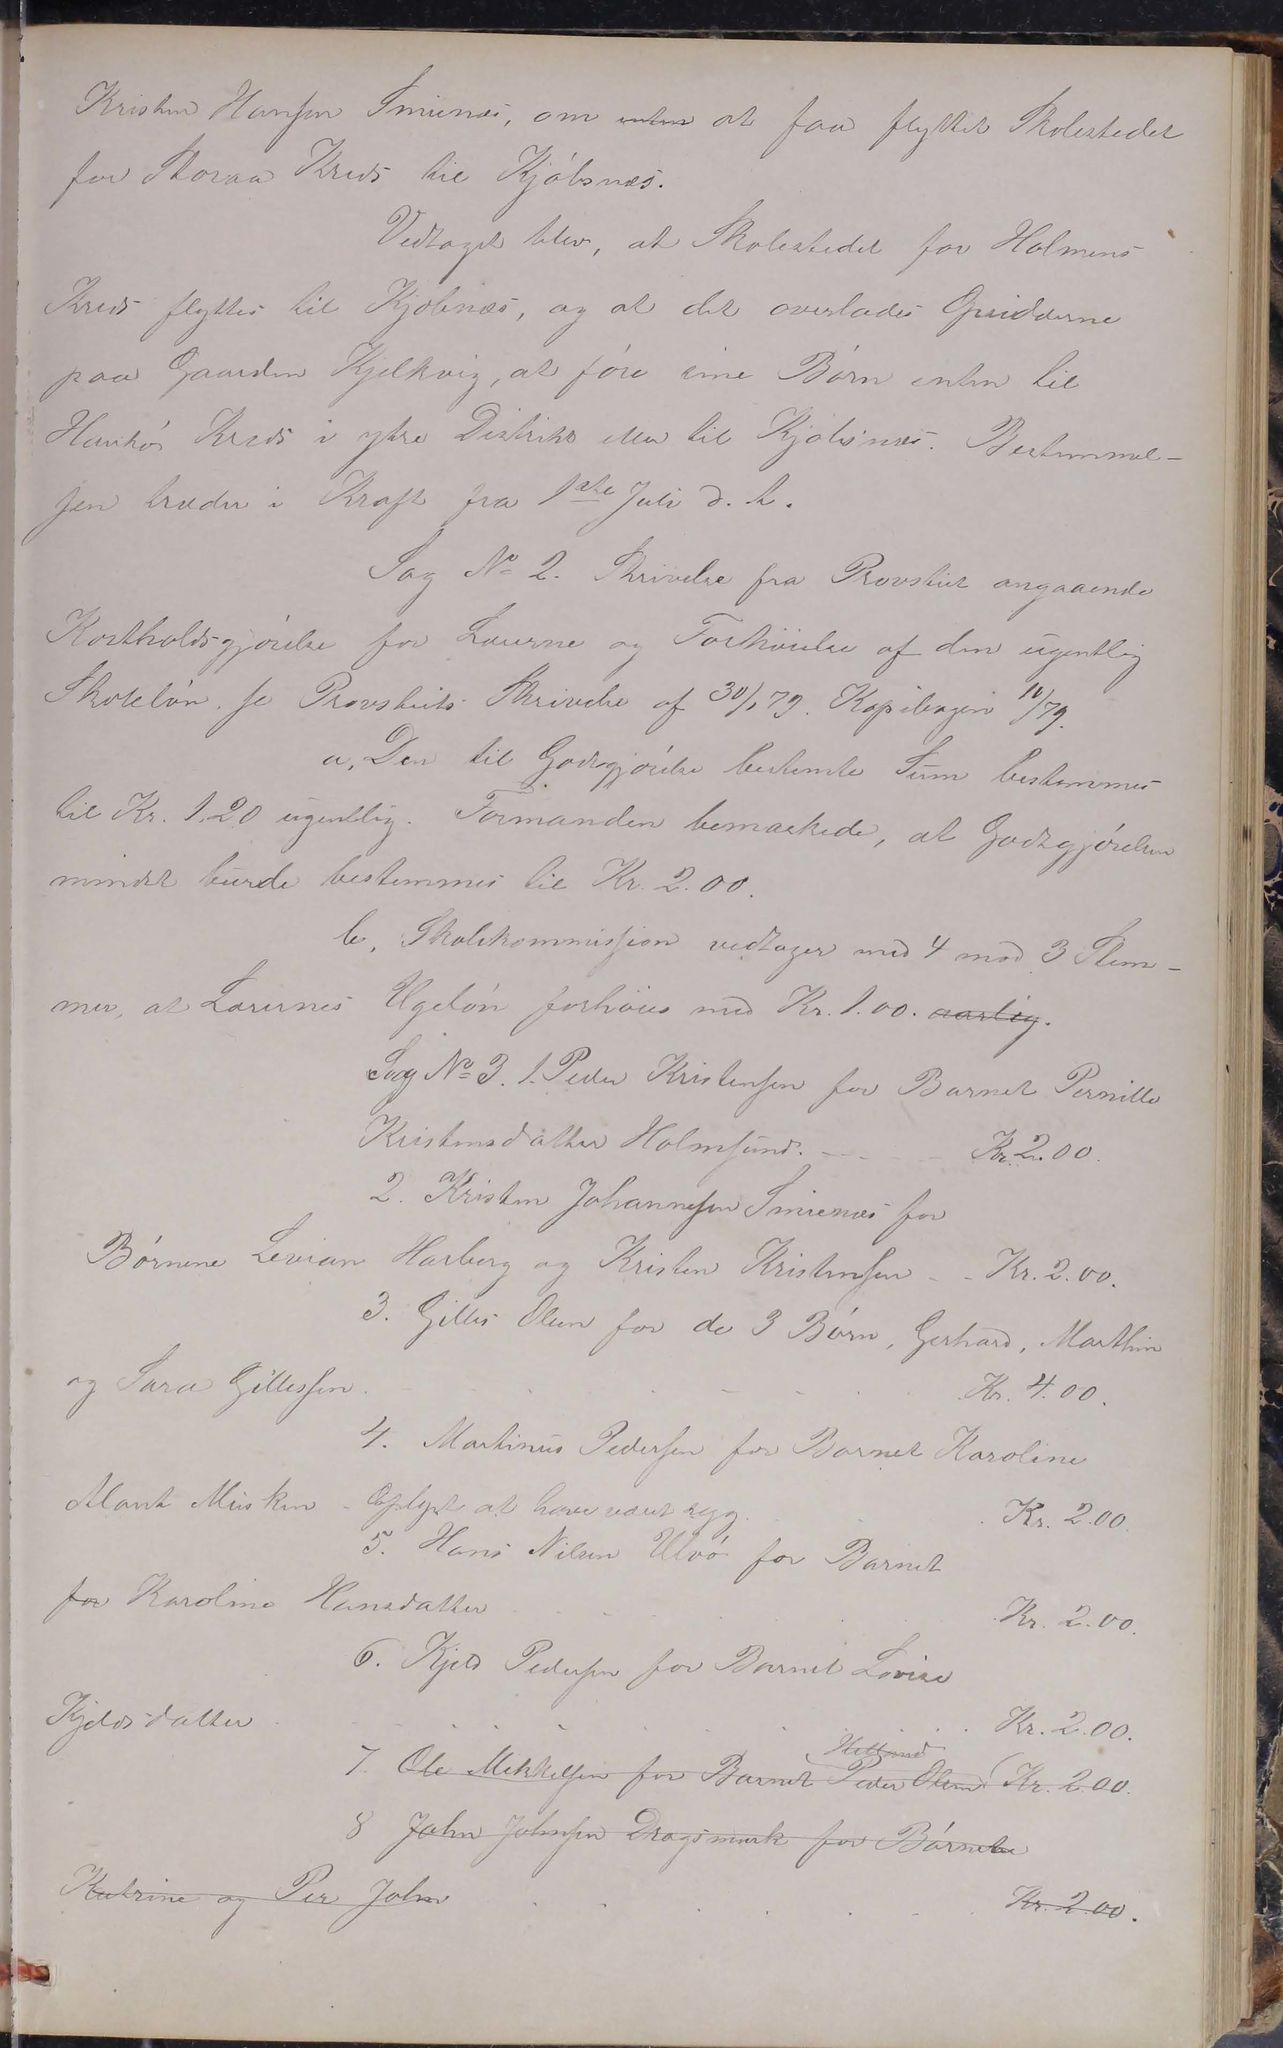 Kristen Hansen Smienæs, om enten at faa flyttet Skolestedet
for Storaa Kreds til Kjöbsnæs.
Vedtaget blev, at Skolestedet for Holmens
Kreds flyttes til Kjöbnæs, og at det overlades Opsidderne
paa Gaarden Kjelkvig, at före sine Börn enten til
Kreds i ytre Distrikt eller til Kjöbsnæs. Bestemmel-
sen træder i Kraft fra 1ste Juli d. A.
Sag No 2. Skrivelse fra Provstiet angaaende
Kostholdsgjörelse for Lærerne og Forhöielse af den ugentlig
Skolelön. se Provstiets Skrivelse af 30/1 79. Kopibogen 10/79.
a, Den til Godtgjörelse bestemte Sum bestemmes
til Kr. 1,20 ugentlig. Formanden bemærkede, at Godtgjörelsen
mindst burde bestemmes til Kr. 2.00.
b, Skolekommission vedtager med 4 mod 3 Stem-
mer, at Lærernes Ugelön forhöies med Kr. 1.00. aarlig.
Sag No 3. 1. Peder Kristensen for Barnet Pernille
Kristensdatter Holmsund. Kr. 2.00.
2. Kristen Johannesen Smienæs for
Börnene Levian Harberg og Kristen Kristensen - - Kr. 2.00.
3. Gilles Olsen for de 3 Börn, Gerhard, Marthin
og Sara Gillessen. Kr. 4.00.
4. Martinus Pedersen for Barnet Karoline
Musken - Oplyst at have været syg. Kr. 2.00.
5. Hans Nilsen Ulvö for Barnet
for Karoline Hansdatter Kr. 2.00.
6. Kjeld Pedersen for Barnet Lovise
Kjeldsdatter Kr. 2.00.
Helland
7. Ole Mikkelsen for Barnet Peder Olsen Kr. 2.00.
8 John Johnsen Dragsmark for Börnene
Katrine og Per John Kr. 2.00.